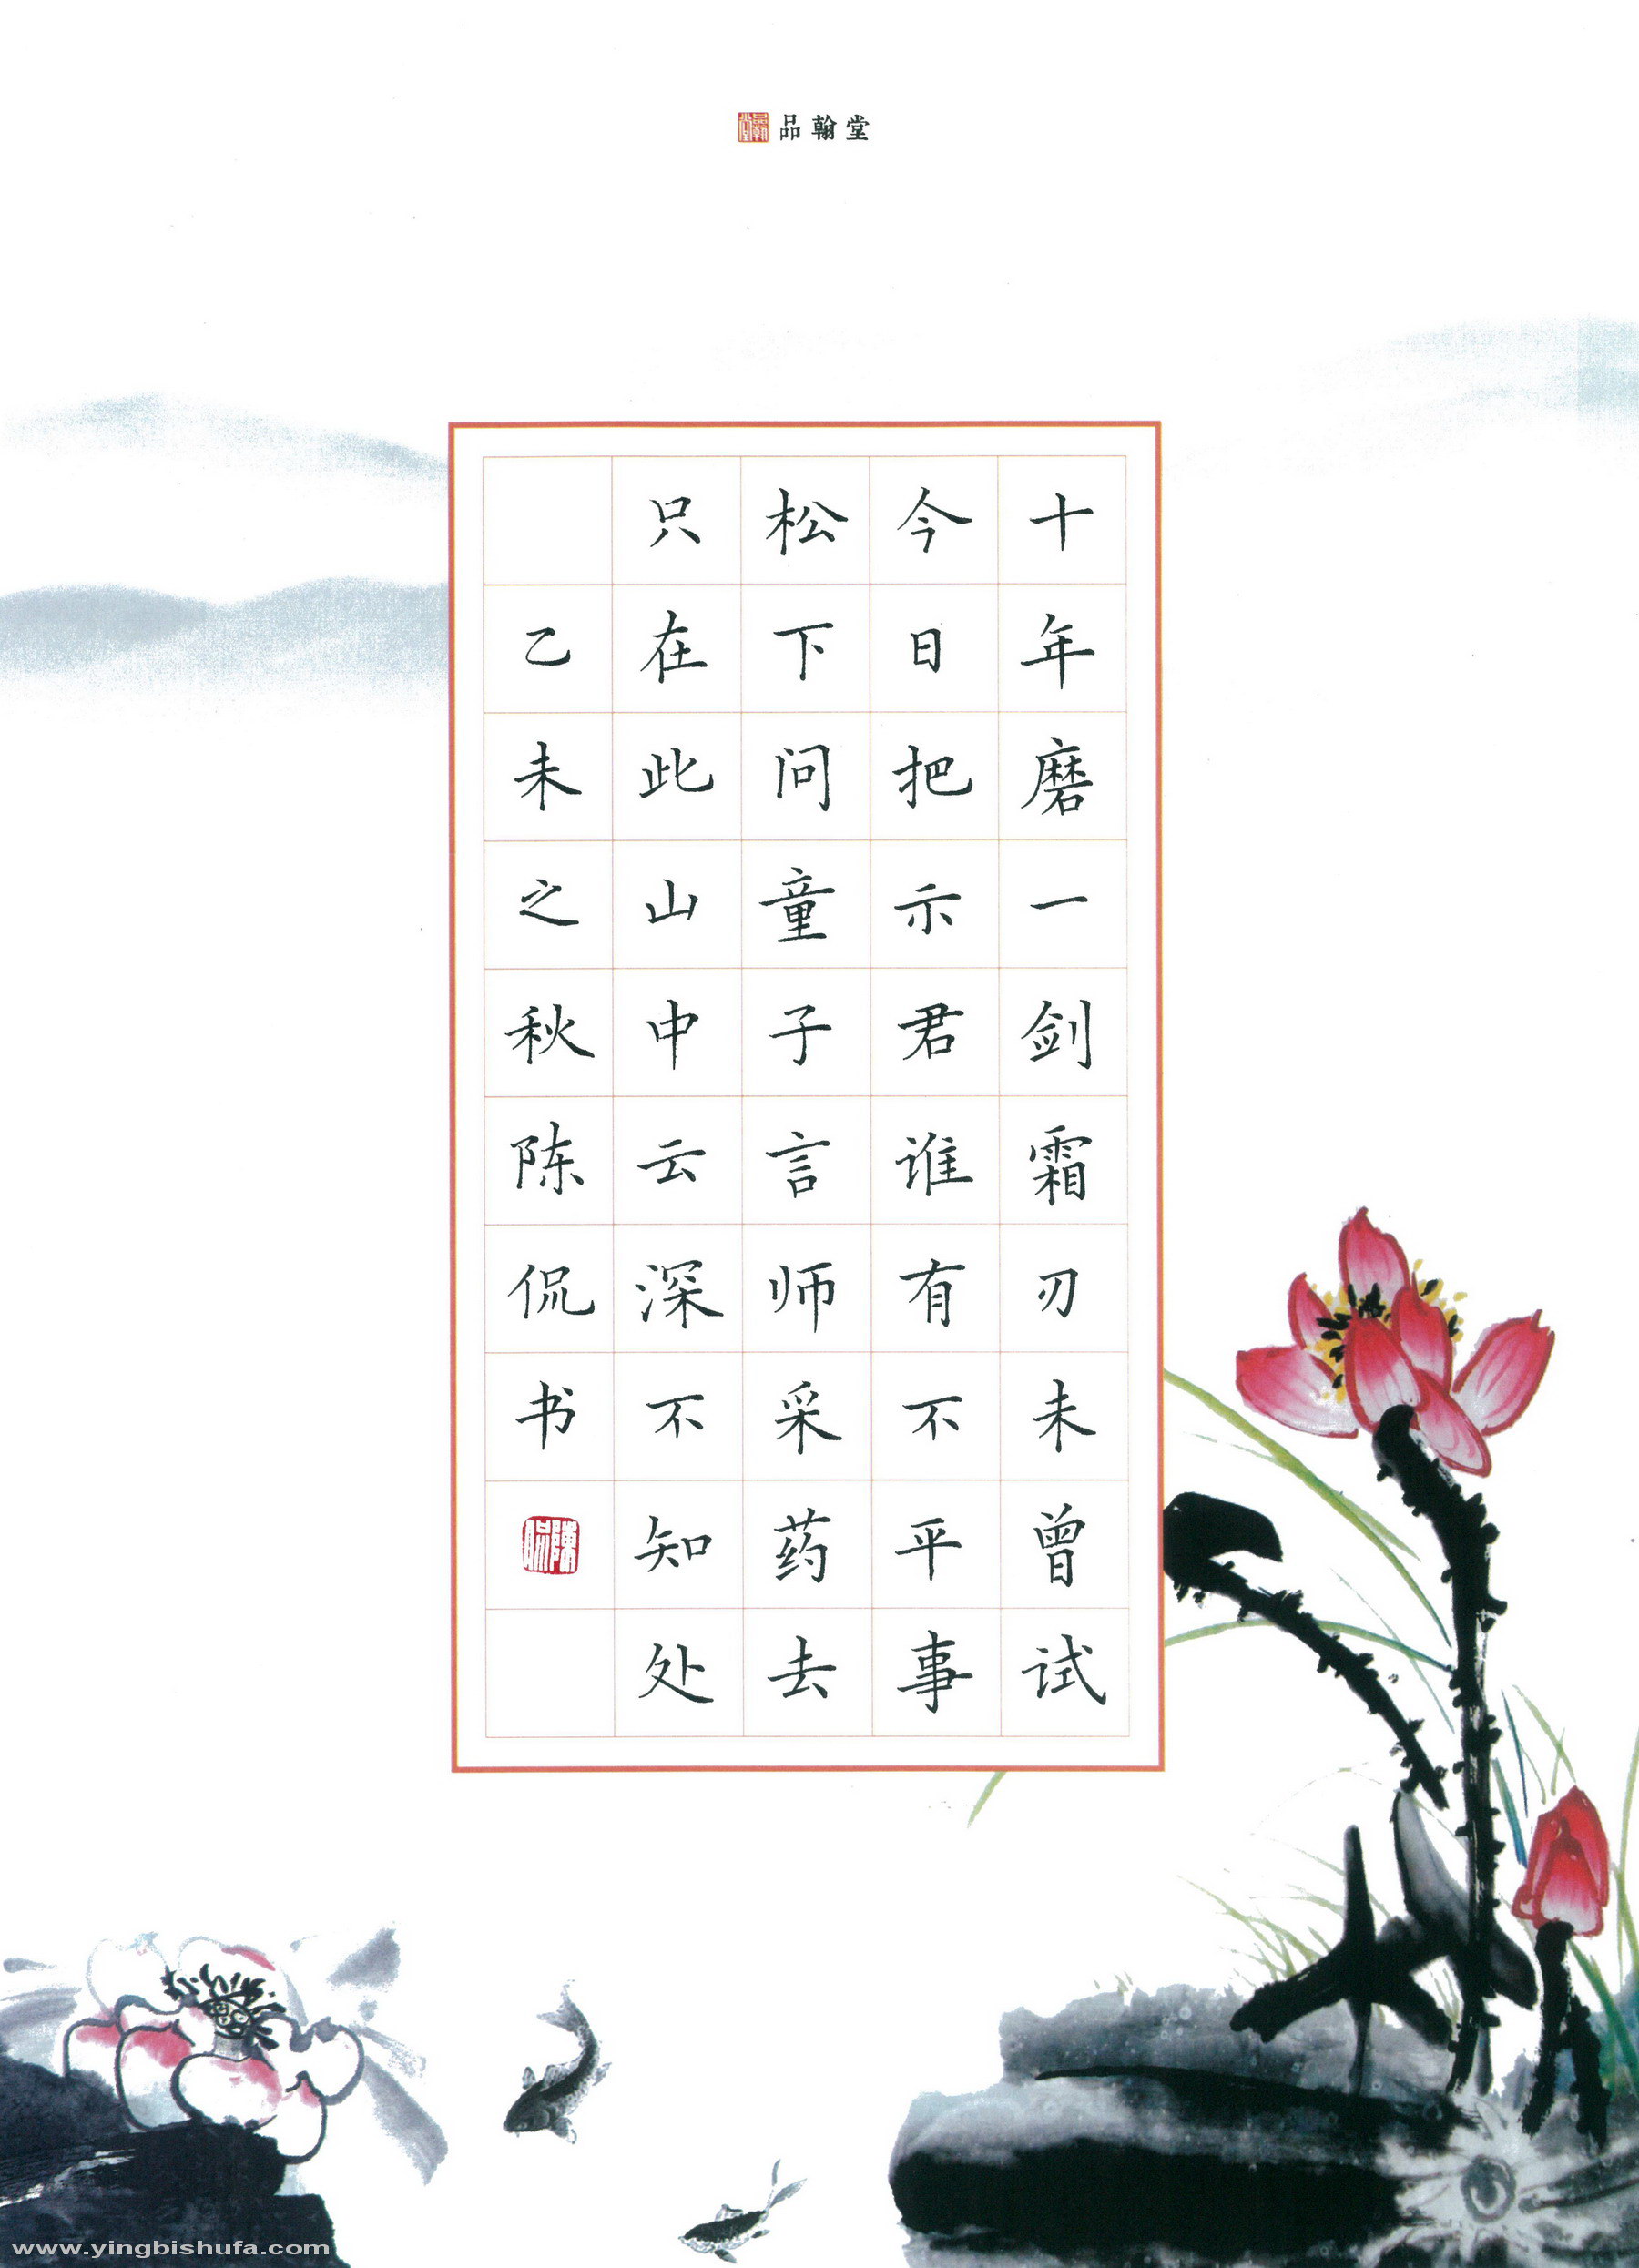 品翰堂
十年磨一剑霜刃未曾试
今日把示君谁有不平事
松下问童子言师采药去
只在此山中云深不知处
乙未之秋陈侃书
陈侃
www.yingbishufa.com